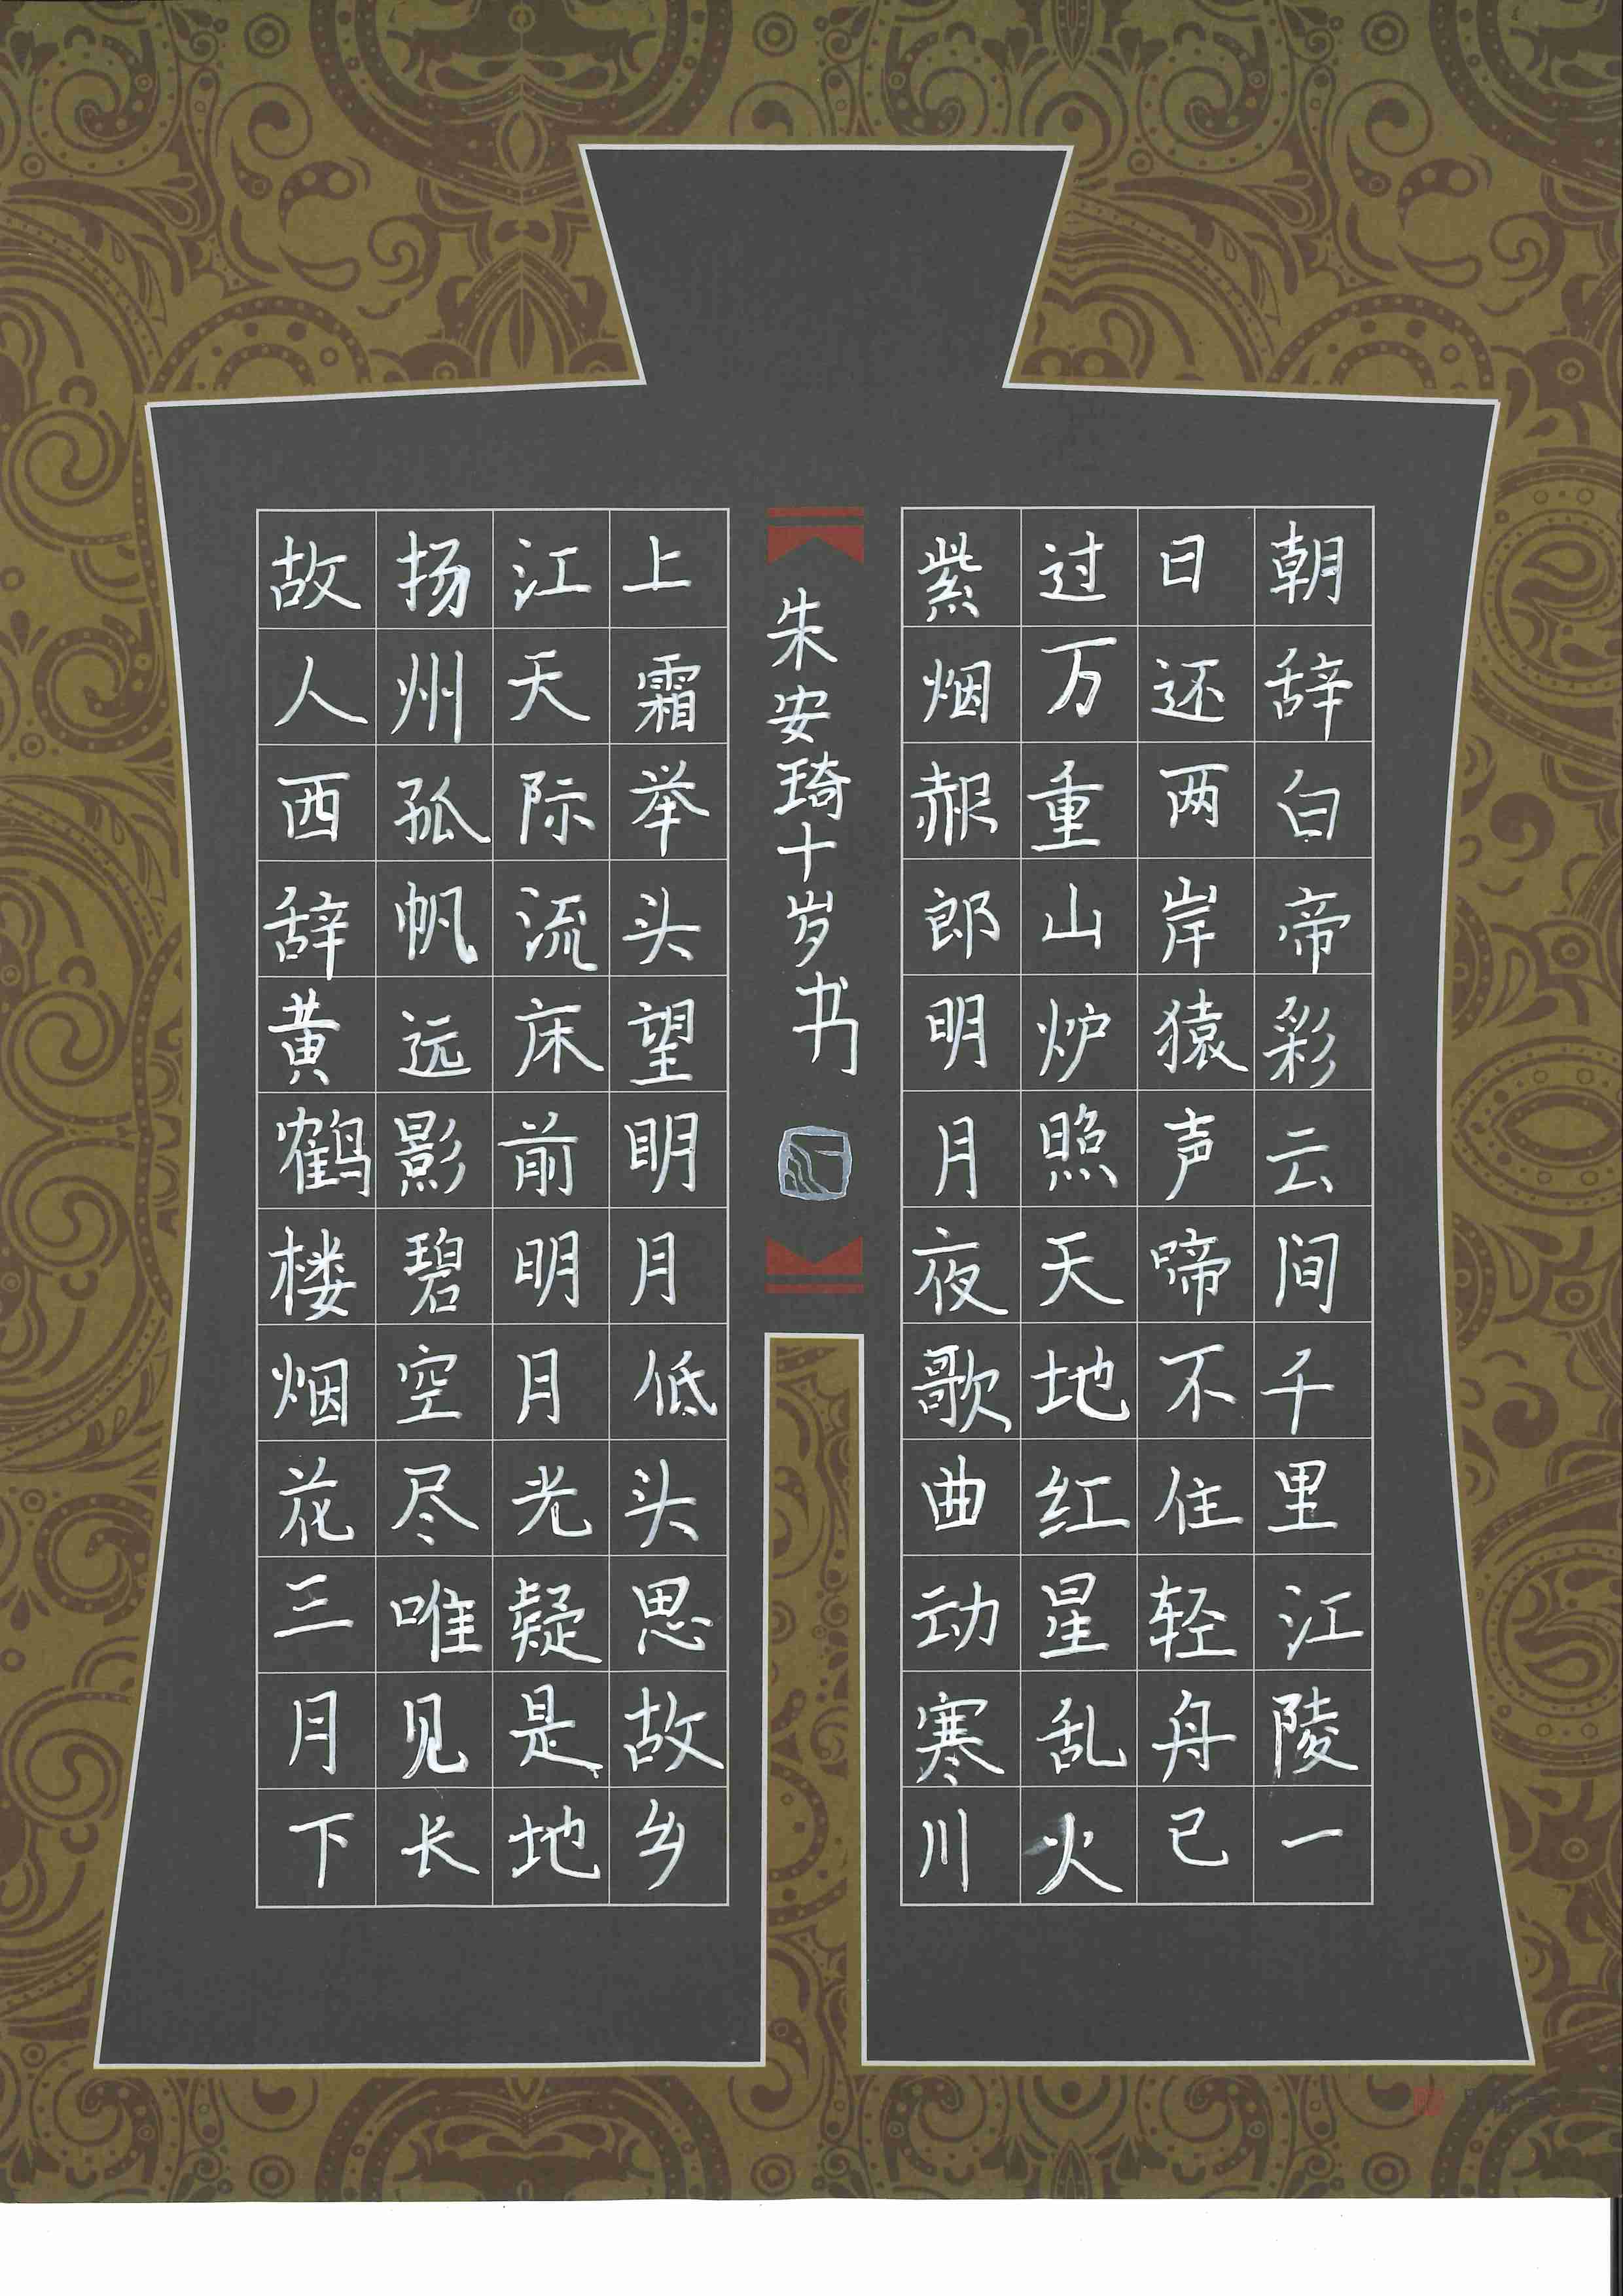 朝辞白帝彩云间千里江陵一
日还两岸猿声啼不住轻舟已
过万重山炉照天地红星乱火
紫烟赧郎明月夜歌曲动寒川
故人西辞黄鹤楼烟花三月下
扬州孤帆远影碧空尽唯见长
江天际流床前明月光疑是地
上霜举头望明月低头思故乡
朱安琦十岁书